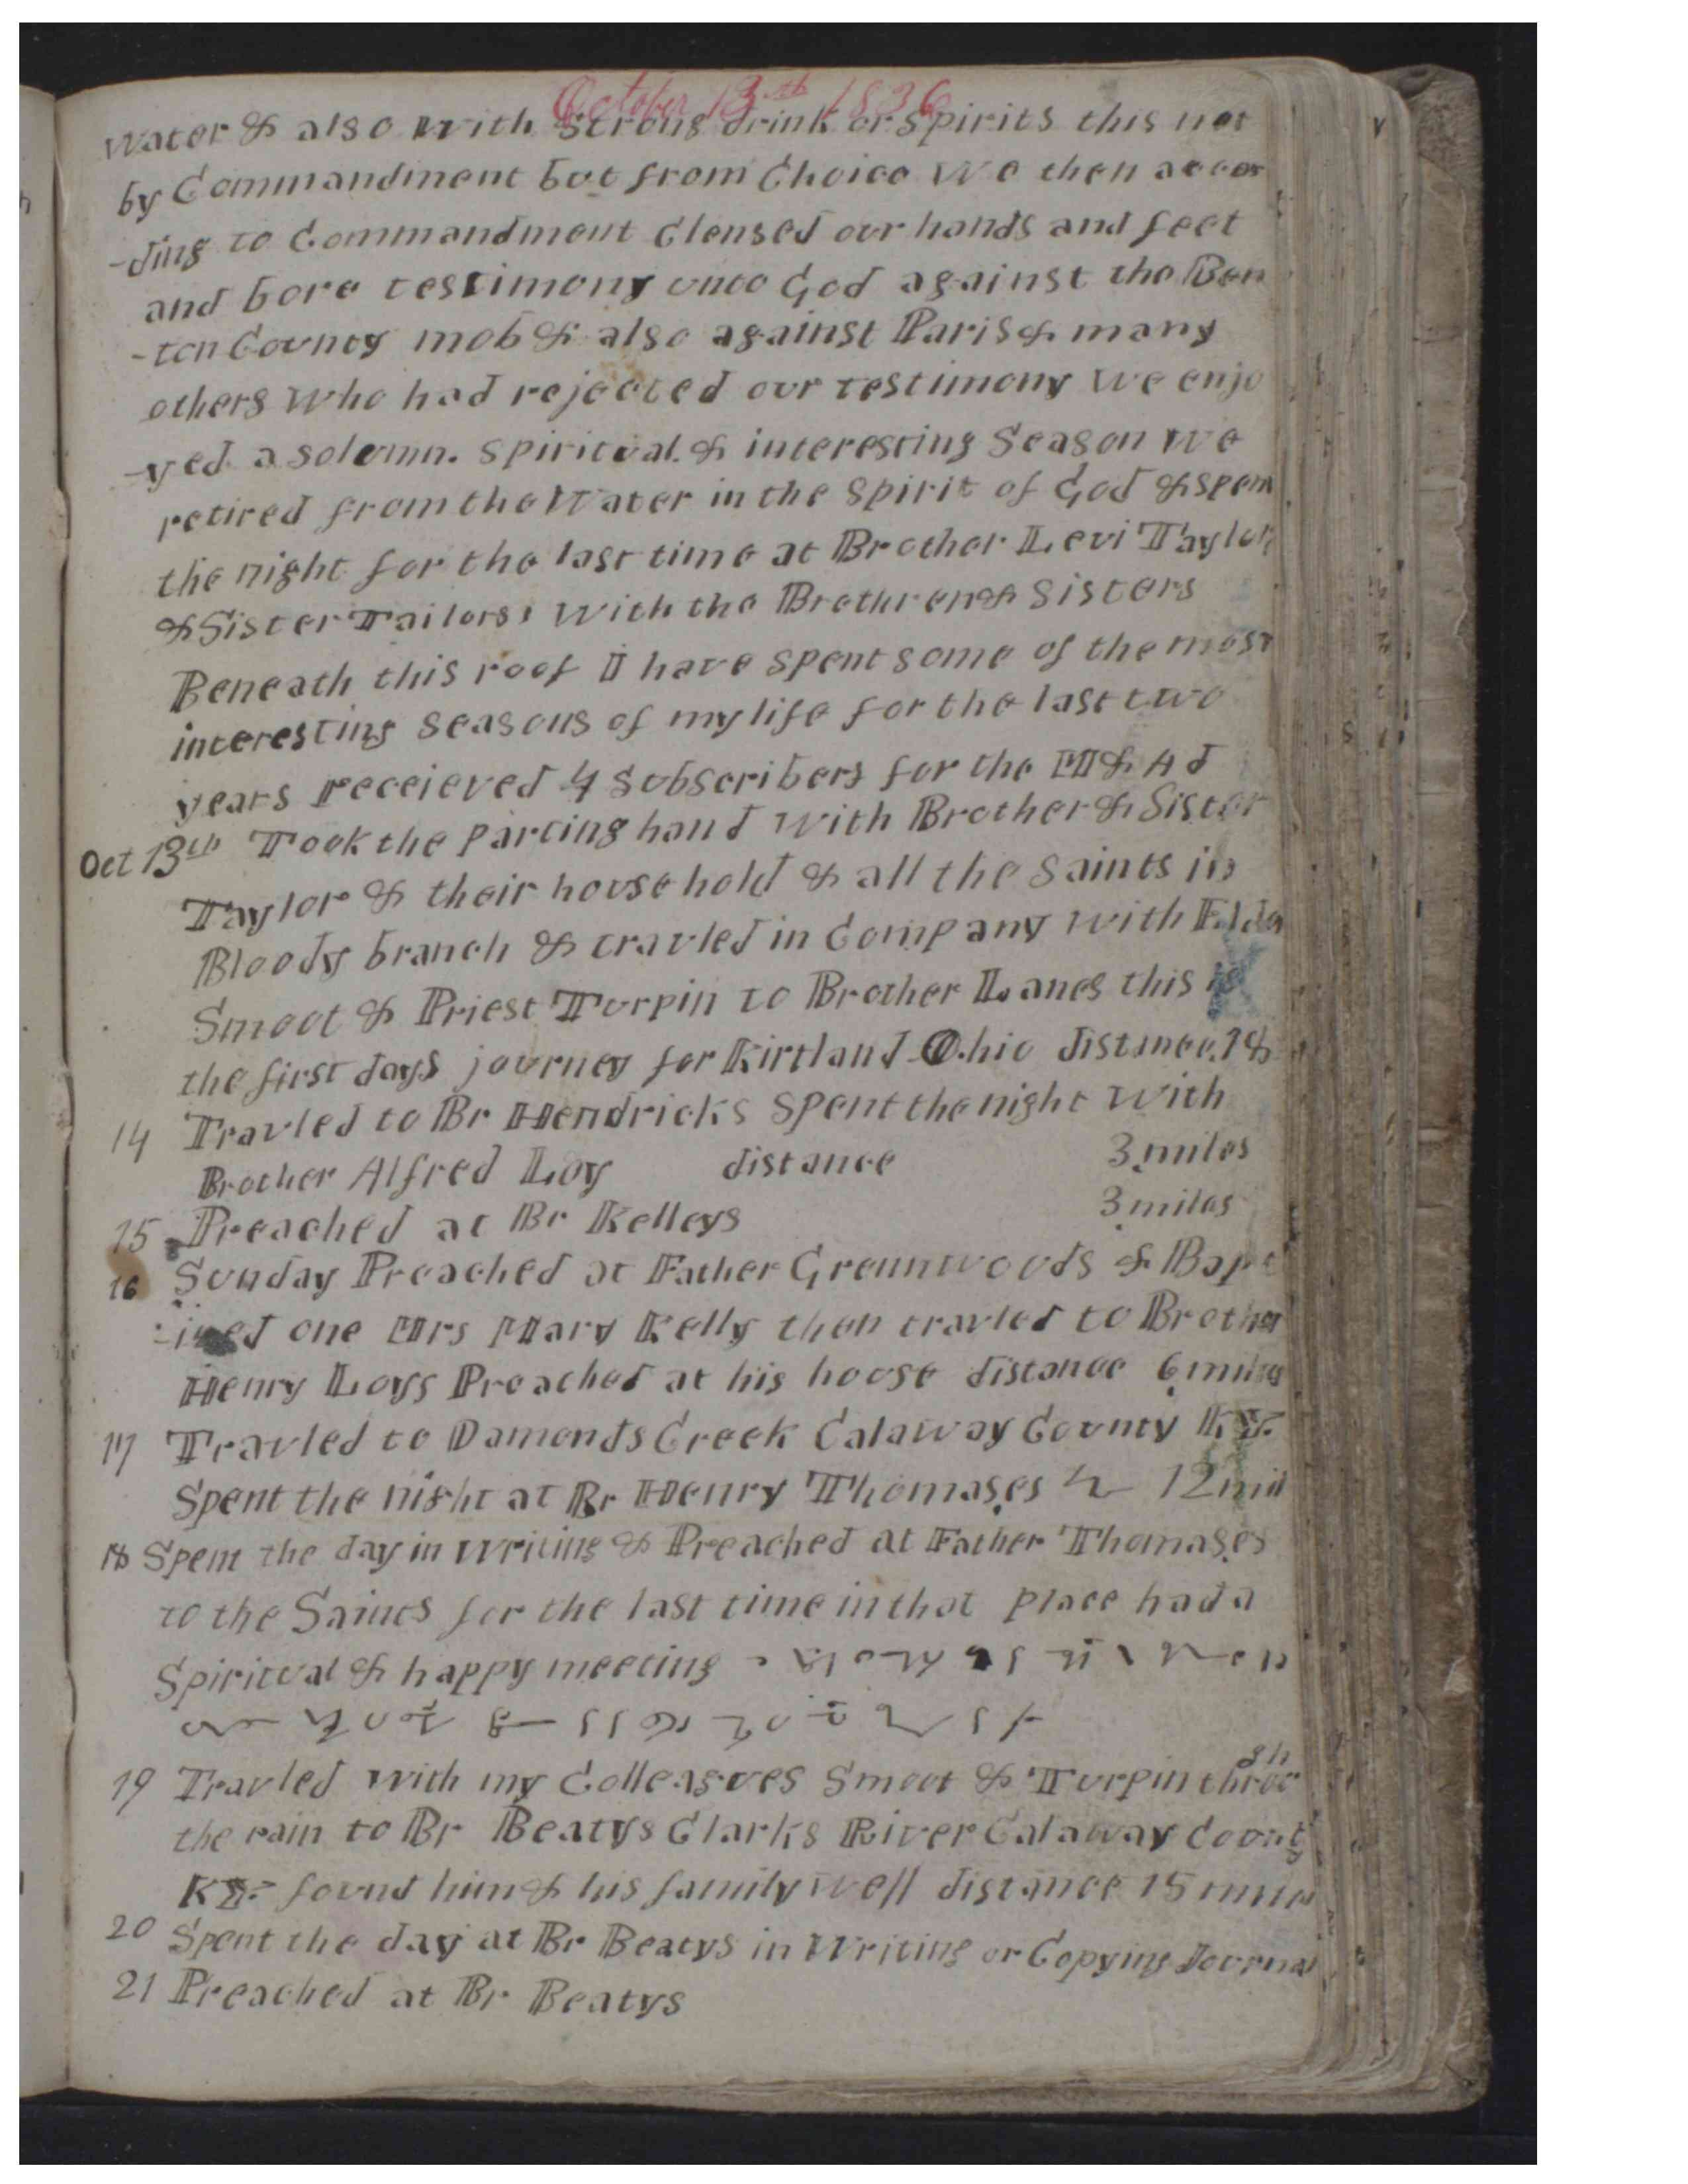 October 13th 1836
water & also with strong drink or spirits this not
by Commandment but from Choice We then accor
-ding to Commandment Clensed our hands and feet
and bore testimony unto God against the Ben
-ton County mob & also against Paris & many
others who had rejected our testimony We enjo
-yed a solemn. spiritual. & interesting Season We
retired from the Water in the spirit of God & spent
the night for the last time at Brother Levi Taylor
& Sister Tailors, With the Brethren & Sisters
Beneath this roof I have spent some of the most
interesting seasons of my life for the last two
years receieved 4 subscribers for the M & Ad
Oct 13th Took the parting hand with Brother & Sister
Taylor & their household & all the Saints in
Bloody branch & travled in Company with Elder
Smoot & Priest Turpin to Brother Lanes this is
the first days journey for Kirtland Ohio distance. 18
14 Travled to Br Hendricks Spent the night with
Brother Alfred Loy distance 3 miles
15 Preached at Br Kelleys 3 miles
16 Sunday Preached at Father Greenwoods & Bapt
-ized one Mrs Mary Kelly then travled to Brother
Henry Loys Preached at his house distance 6 miles
17 Travled to Damonds Creek Calaway County KY.
Spent the night at Br Henry Thomases 12 mil
18 Spent the day in Writing & Preached at Father Thomases
to the Saints for the last time in that place had a
Spiritual & happy meeting
19 Travled with my Colleagues Smoot & Turpin through
the rain to Br Beatys Clarks River Calaway County
KY. found him & his family well distance 15 miles
20 Spent the day at Br Beatys in Writing or Copying Journal
21 Preached at Br Beatys